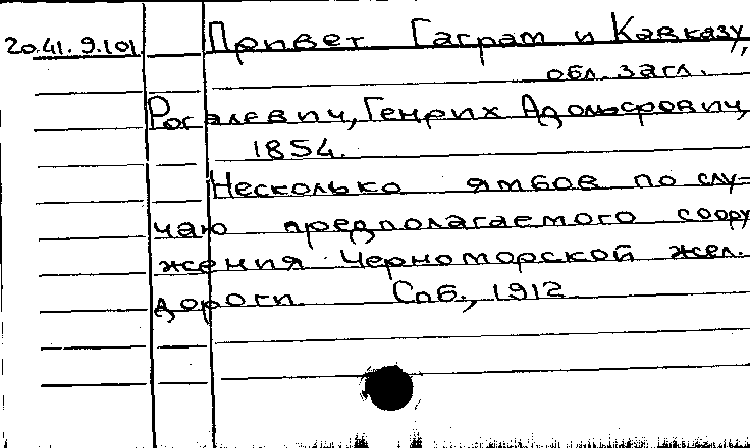 20.41.9.101 Привет Гаграм и Кавказу,
обл. загл.
Росалевич, Генрих Адольфович,
1854.
Несколько ямбов по слу=
чаю предполагаемого соору
жения Черноморской жел.
дороги. Спб., 1912